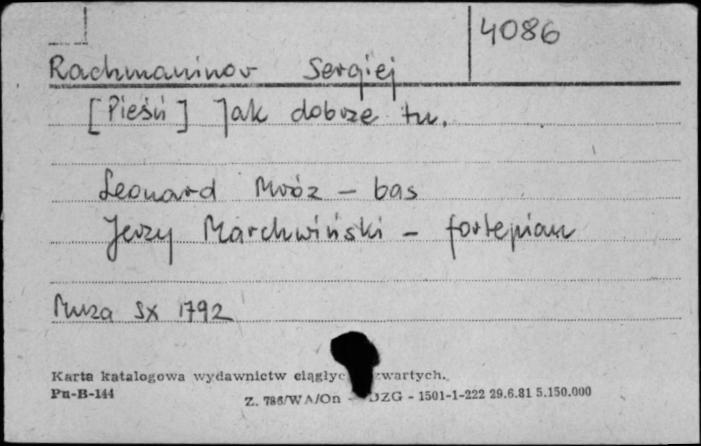 4086
Rachmaninov Sergiej
[Pieśń] Jak dobrze tu.
Leonard Mróz - bas
Jerzy Marchwiński - fortepian
Muza SX 1792
Karta katalogowa wydawnictw ciągłyc zwartych.
Pu-B-144
Z. 786/WA/On - DZG - 1501-1-222 29.6.81 5.150.000